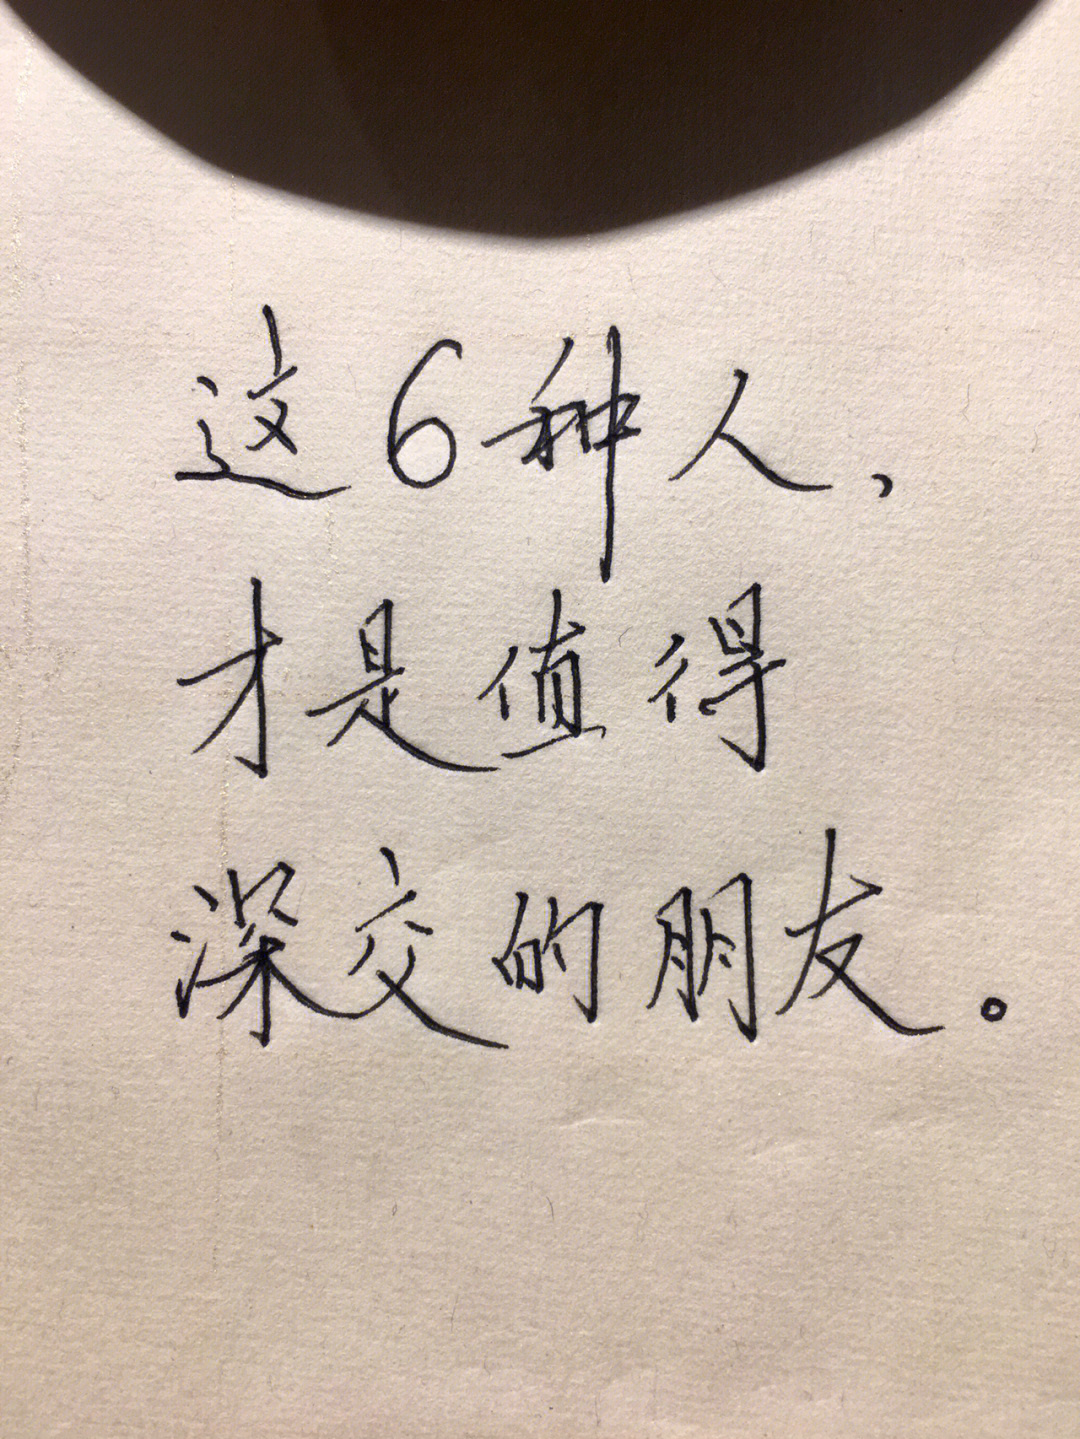 这6种人、
才是值得
深交的朋友。